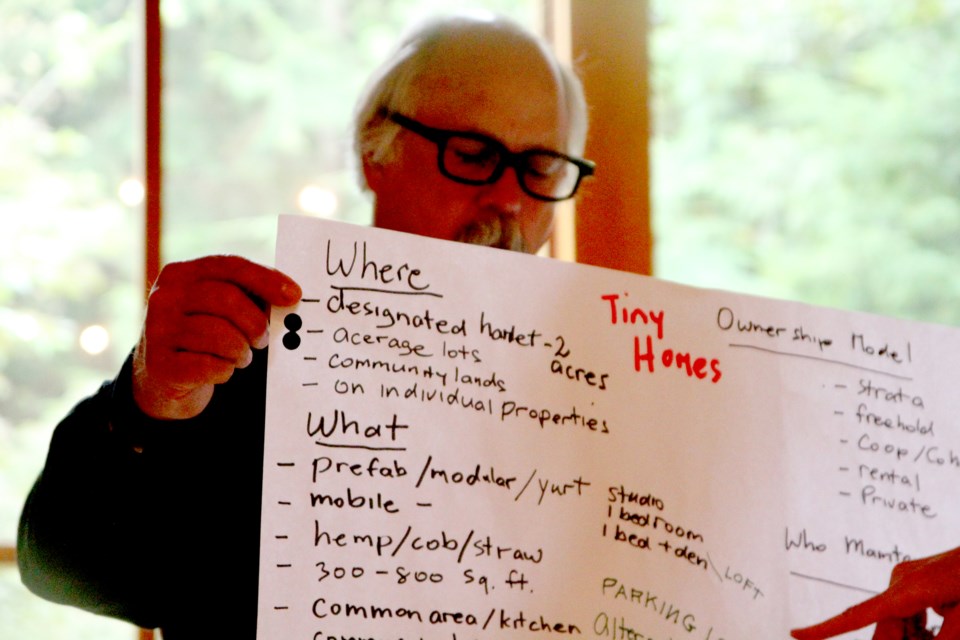 Where
- designated hamlet - 2 acres
- acerage lots
- community lands
- on individual properties
What
- prefab/modular/yurt
- mobile -
- hemp/cob/straw
- 300-800 sq. ft.
- Common area/kitchen
studio
1 bedroom
1 bed + den \ LOFT
PARKING
Tiny
Homes
Ownership Model
- strata
- freehold
- Coop/Coh
- rental
- Private
Who